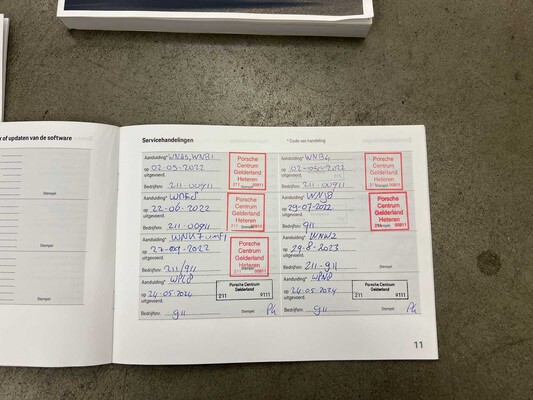 r of updaten van de software
Stempel
Stempel
Stempel
Servicehandelingen
* Code van handeling
Aanduiding* WNA5, WNB1
op 02-05-2022
uitgevoerd.
Bedrijfsnr. 211-00911
Porsche
Centrum
Gelderland
Heteren
211 Stempel 00911
Aanduiding* WNB4
op 02-05-2022
uitgevoerd.
Bedrijfsnr. 211-00911
Porsche
Centrum
Gelderland
Heteren
211 Stempel 00911
Aanduiding*
op 22-06-2022
uitgevoerd.
Bedrijfsnr. 211-00911
Porsche
Centrum
Gelderland
Heteren
Aanduiding* WNJ8
op 29-07-2022
uitgevoerd.
Bedrijfsnr. 911
Porsche
Centrum
Gelderland
Heteren
Aanduiding*
op
uitgevoerd.
Bedrijfsnr. 211/911
Porsche
Centrum
Gelderland
Heteren
Aanduiding* WNW2
op 29-8-2023
uitgevoerd.
Bedrijfsnr. 211-911
Stempel
Aanduiding* WPL8
op 24-05-2024
uitgevoerd.
Bedrijfsnr. 911
Porsche Centrum
Gelderland
211 9111
Stempel
Aanduiding*
op 24-05-2024
uitgevoerd.
Bedrijfsnr. 911
Porsche Centrum
Gelderland
211 9111
Stempel
11